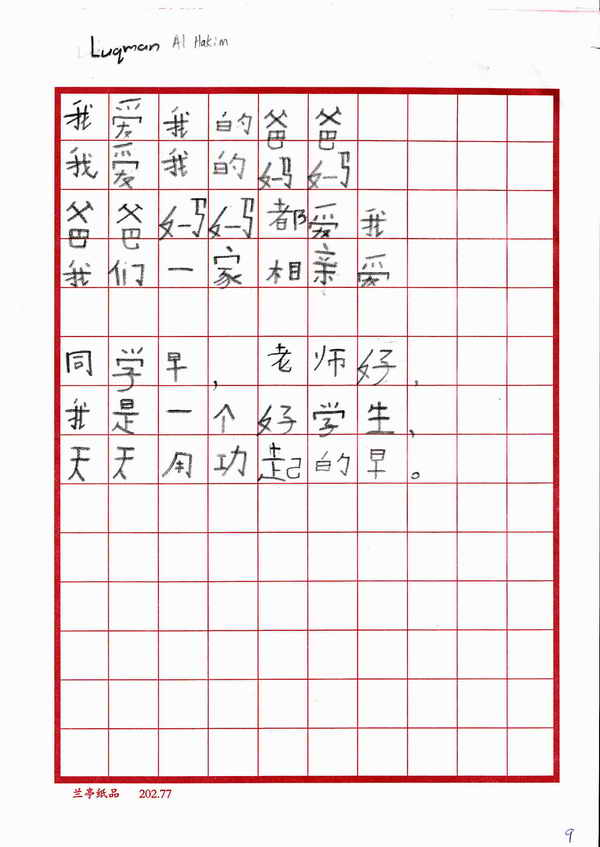 Luqman Al Hakim
我爱我的爸爸
我爱我的妈妈
爸爸妈妈都爱我
我们一家相亲爱
同学早，老师好，
我是一个好学生，
天天用功起的早。
兰亭纸品 202.77
9